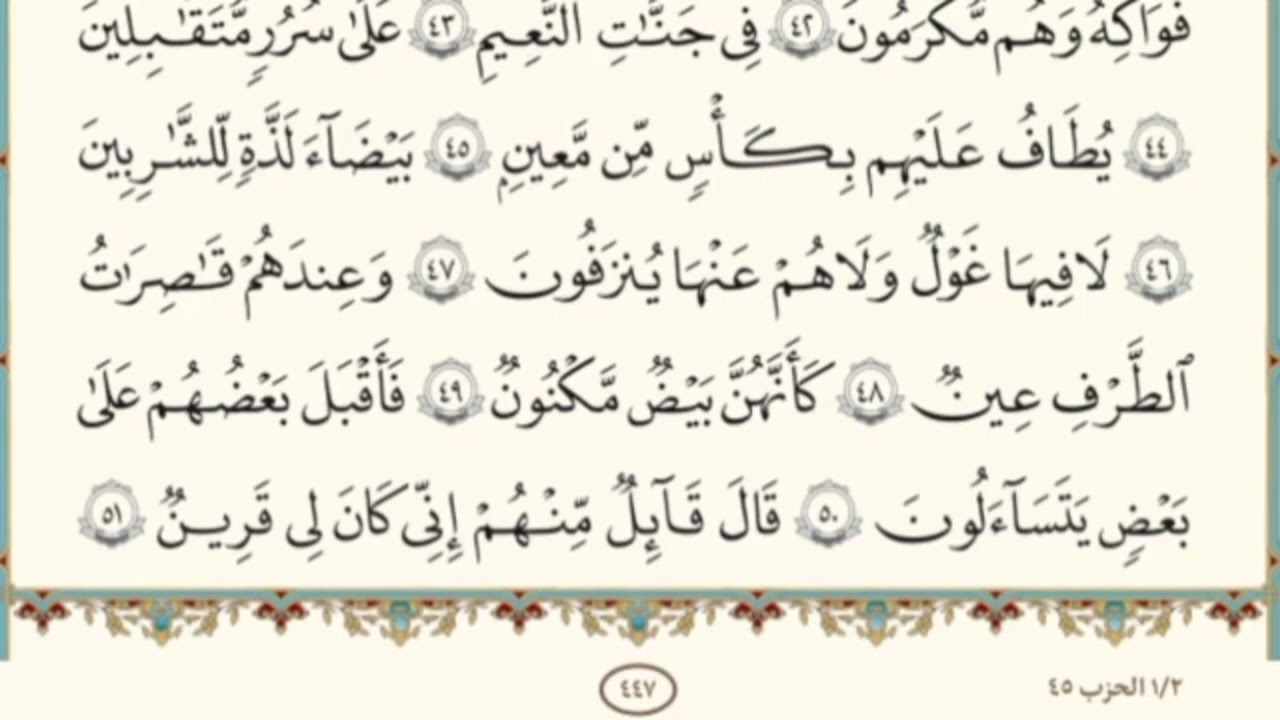 فَوَٰكِهُ وَهُم مُّكْرَمُونَ ٤٢ فِي جَنَّـٰتِ ٱلنَّعِيمِ ٤٣ عَلَىٰ سُرُرٍ مُّتَقَـٰبِلِينَ
٤٤ يُطَافُ عَلَيْهِم بِكَأْسٍ مِّن مَّعِينٍۭ ٤٥ بَيْضَآءَ لَذَّةٍ لِّلشَّـٰرِبِينَ
٤٦ لَا فِيهَا غَوْلٌ وَلَا هُمْ عَنْهَا يُنزَفُونَ ٤٧ وَعِندَهُمْ قَـٰصِرَٰتُ
ٱلطَّرْفِ عِينٌ ٤٨ كَأَنَّهُنَّ بَيْضٌ مَّكْنُونٌ ٤٩ فَأَقْبَلَ بَعْضُهُمْ عَلَىٰ
بَعْضٍ يَتَسَآءَلُونَ ٥٠ قَالَ قَآئِلٌ مِّنْهُمْ إِنِّي كَانَ لِي قَرِينٌ ٥١
١/٢ الحزب ٤٥
٤٤٧